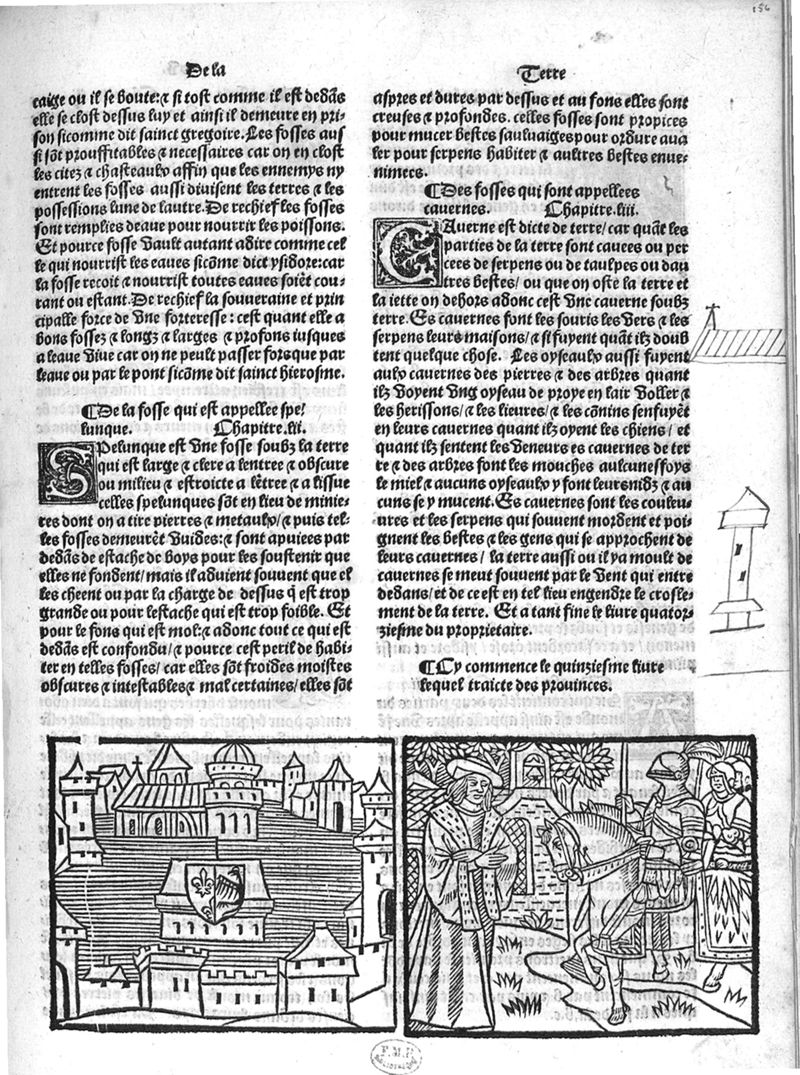 156
De la
Terre
caige ou il se boute:⁊ si tost comme il est dedãs
elle se clost dessus luy et ainsi il demeure en pri-
son sicomme dit sainct gregoire. Les fosses aus
si sõt prouffitables ⁊ necessaires car on en clost
les citez ⁊ chasteaulx affin que les ennemys ny
entrent les fosses aussi diuisent les terres ⁊ les
possessions lune de lautre. De rechief les fosses
sont remplies deaue pour nourrir les poissons.
Et pource fosse vault autant adire comme cel
le qui nourrist les eaues sicõme dict ysidore: car
la fosse recoit ⁊ nourrist toutes eaues soiẽt cou-
rant ou estant. De rechief la souueraine et prin
cipalle force de vne forteresse: cest quant elle a
bons fossez ⁊ longz ⁊ larges ⁊ profons iusques
a leaue viue car on ne peult passer forsque par
leaue ou par le pont sicõme dit sainct hierosme.
¶De la fosse qui est appellee spe/
lunque. Chapitre.lii.
SPelunque est vne fosse soubz la terre
qui est large ⁊ clere a lentree ⁊ obscure
ou milieu ⁊ estroicte a lẽtree ⁊ a lissue
celles spelunques sõt en lieu de minie-
res dont on a tire pierres ⁊ metaulx/⁊ puis tel-
les fosses demeurẽt vuides:⁊ sont apuiees par
dedãs de estache de boys pour les soustenir que
elles ne fondent/ mais il aduient souuent que el
les cheent ou par la charge de dessus q̃ est trop
grande ou pour lestache qui est trop foible. Et
pour le fons qui est mol:⁊ adonc tout ce qui est
dedãs est confondu/⁊ pource cest peril de habi-
ter en telles fosses/ car elles sõt froides moistes
obscures ⁊ intestables⁊ mal certaines/ elles sõt
aspres et dures par dessus et au fons elles sont
creuses ⁊ profondes. celles fosses sont propices
pour mucer bestes sauluaiges pour ordure aua
ler pour serpens habiter ⁊ aultres bestes enue-
nimees.
¶Des fosses qui sont appellees
cauernes. Chapitre.liii.
CAuerne est dicte de terre/ car quãt les
parties de la terre sont cauees ou per
cees de serpens ou de taulpes ou dau
tres bestes/ ou que on oste la terre et
la iette on dehors adonc cest vne cauerne soubz
terre. Es cauernes font les souris les vers ⁊ les
serpens leurs maisons/⁊ si fuyent quãt ilz doub
tent quelque chose. Les oyseaulx aussi fuyent
aulx cauernes des pierres ⁊ des arbres quant
ilz voyent vng oyseau de proye en lair voller ⁊
les herissons/⁊ les lieures/⁊ les cõnins senfuyẽt
en leurs cauernes quant ilz oyent les chiens/ et
quant ilz sentent les veneurs es cauernes de ter
re ⁊ des arbres font les mouches aulcuneffoys
le miel ⁊ aucuns oyseaulx y font leurs nidz ⁊ au
cuns se y mucent. Es cauernes sont les couleu-
ures et les serpens qui souuent mordent et poi-
gnent les bestes ⁊ les gens qui se approchent de
leurs cauernes/ la terre aussi ou il ya moult de
cauernes se meut souuent par le vent qui entre
dedans/ et de ce est en tel lieu engendre le crosle-
ment de la terre. Et a tant fine le liure quator-
ziesme du proprietaire.
¶Cy commence le quinziesme liure
lequel traicte des prouinces.